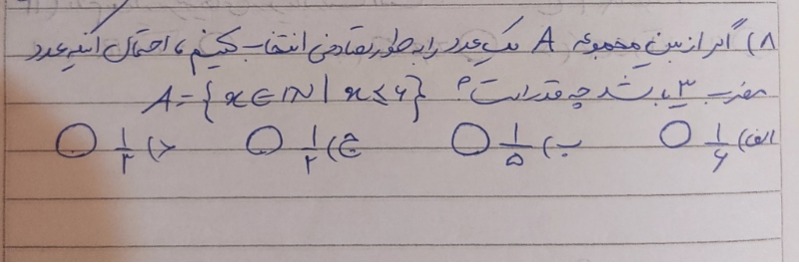 ۸) اگر از بین مجموعه A یک عدد را به طور تصادفی انتخاب کنیم، احتمال آنکه عدد
مضرب ۳ باشد چه قدر است؟ A = {x ∈ N | x ≤ ۶}
الف) ۱/۶ ب) ۱/۵ ج) ۱/۲ د) ۱/۳